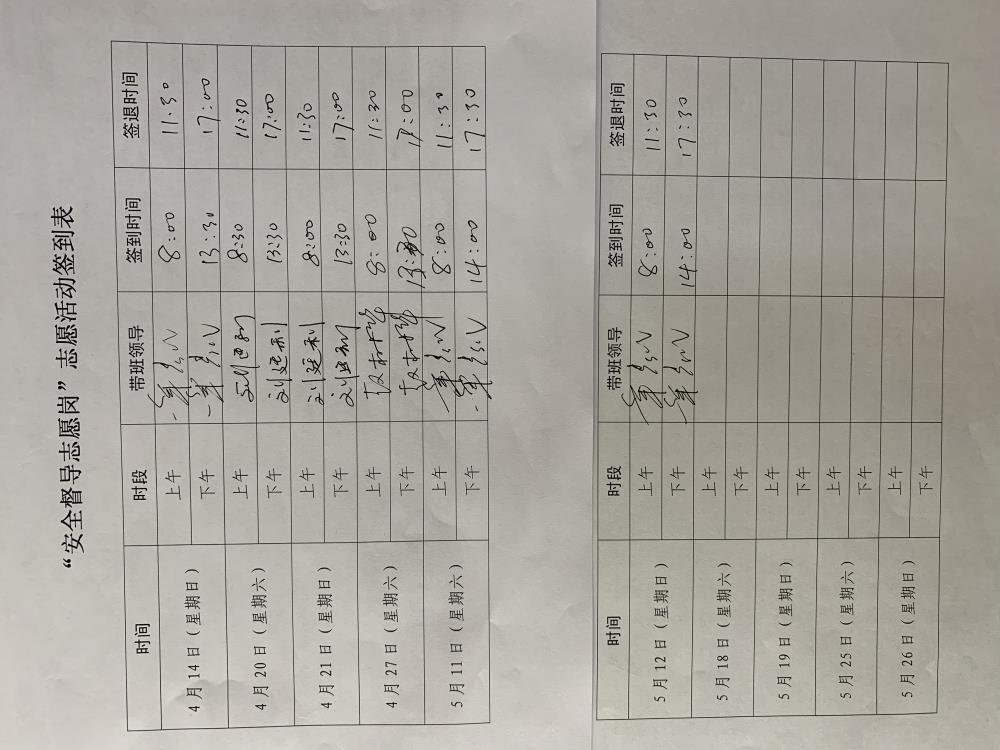 “安全督导志愿岗”志愿活动签到表
时间 时段 带班领导 签到时间 签退时间
4月14日（星期日） 上午 8:00 11:30
下午 13:30 17:00
4月20日（星期六） 上午 8:30 11:30
下午 刘延利 13:30 17:00
4月21日（星期日） 上午 刘延利 8:00 11:30
下午 刘延利 13:30 17:00
4月27日（星期六） 上午 8:00 11:30
下午 13:30 17:00
5月11日（星期六） 上午 8:00 11:30
下午 14:00 17:30
时间 时段 带班领导 签到时间 签退时间
5月12日（星期日） 上午 8:00 11:30
下午 14:00 17:30
5月18日（星期六） 上午
下午
5月19日（星期日） 上午
下午
5月25日（星期六） 上午
下午
5月26日（星期日） 上午
下午